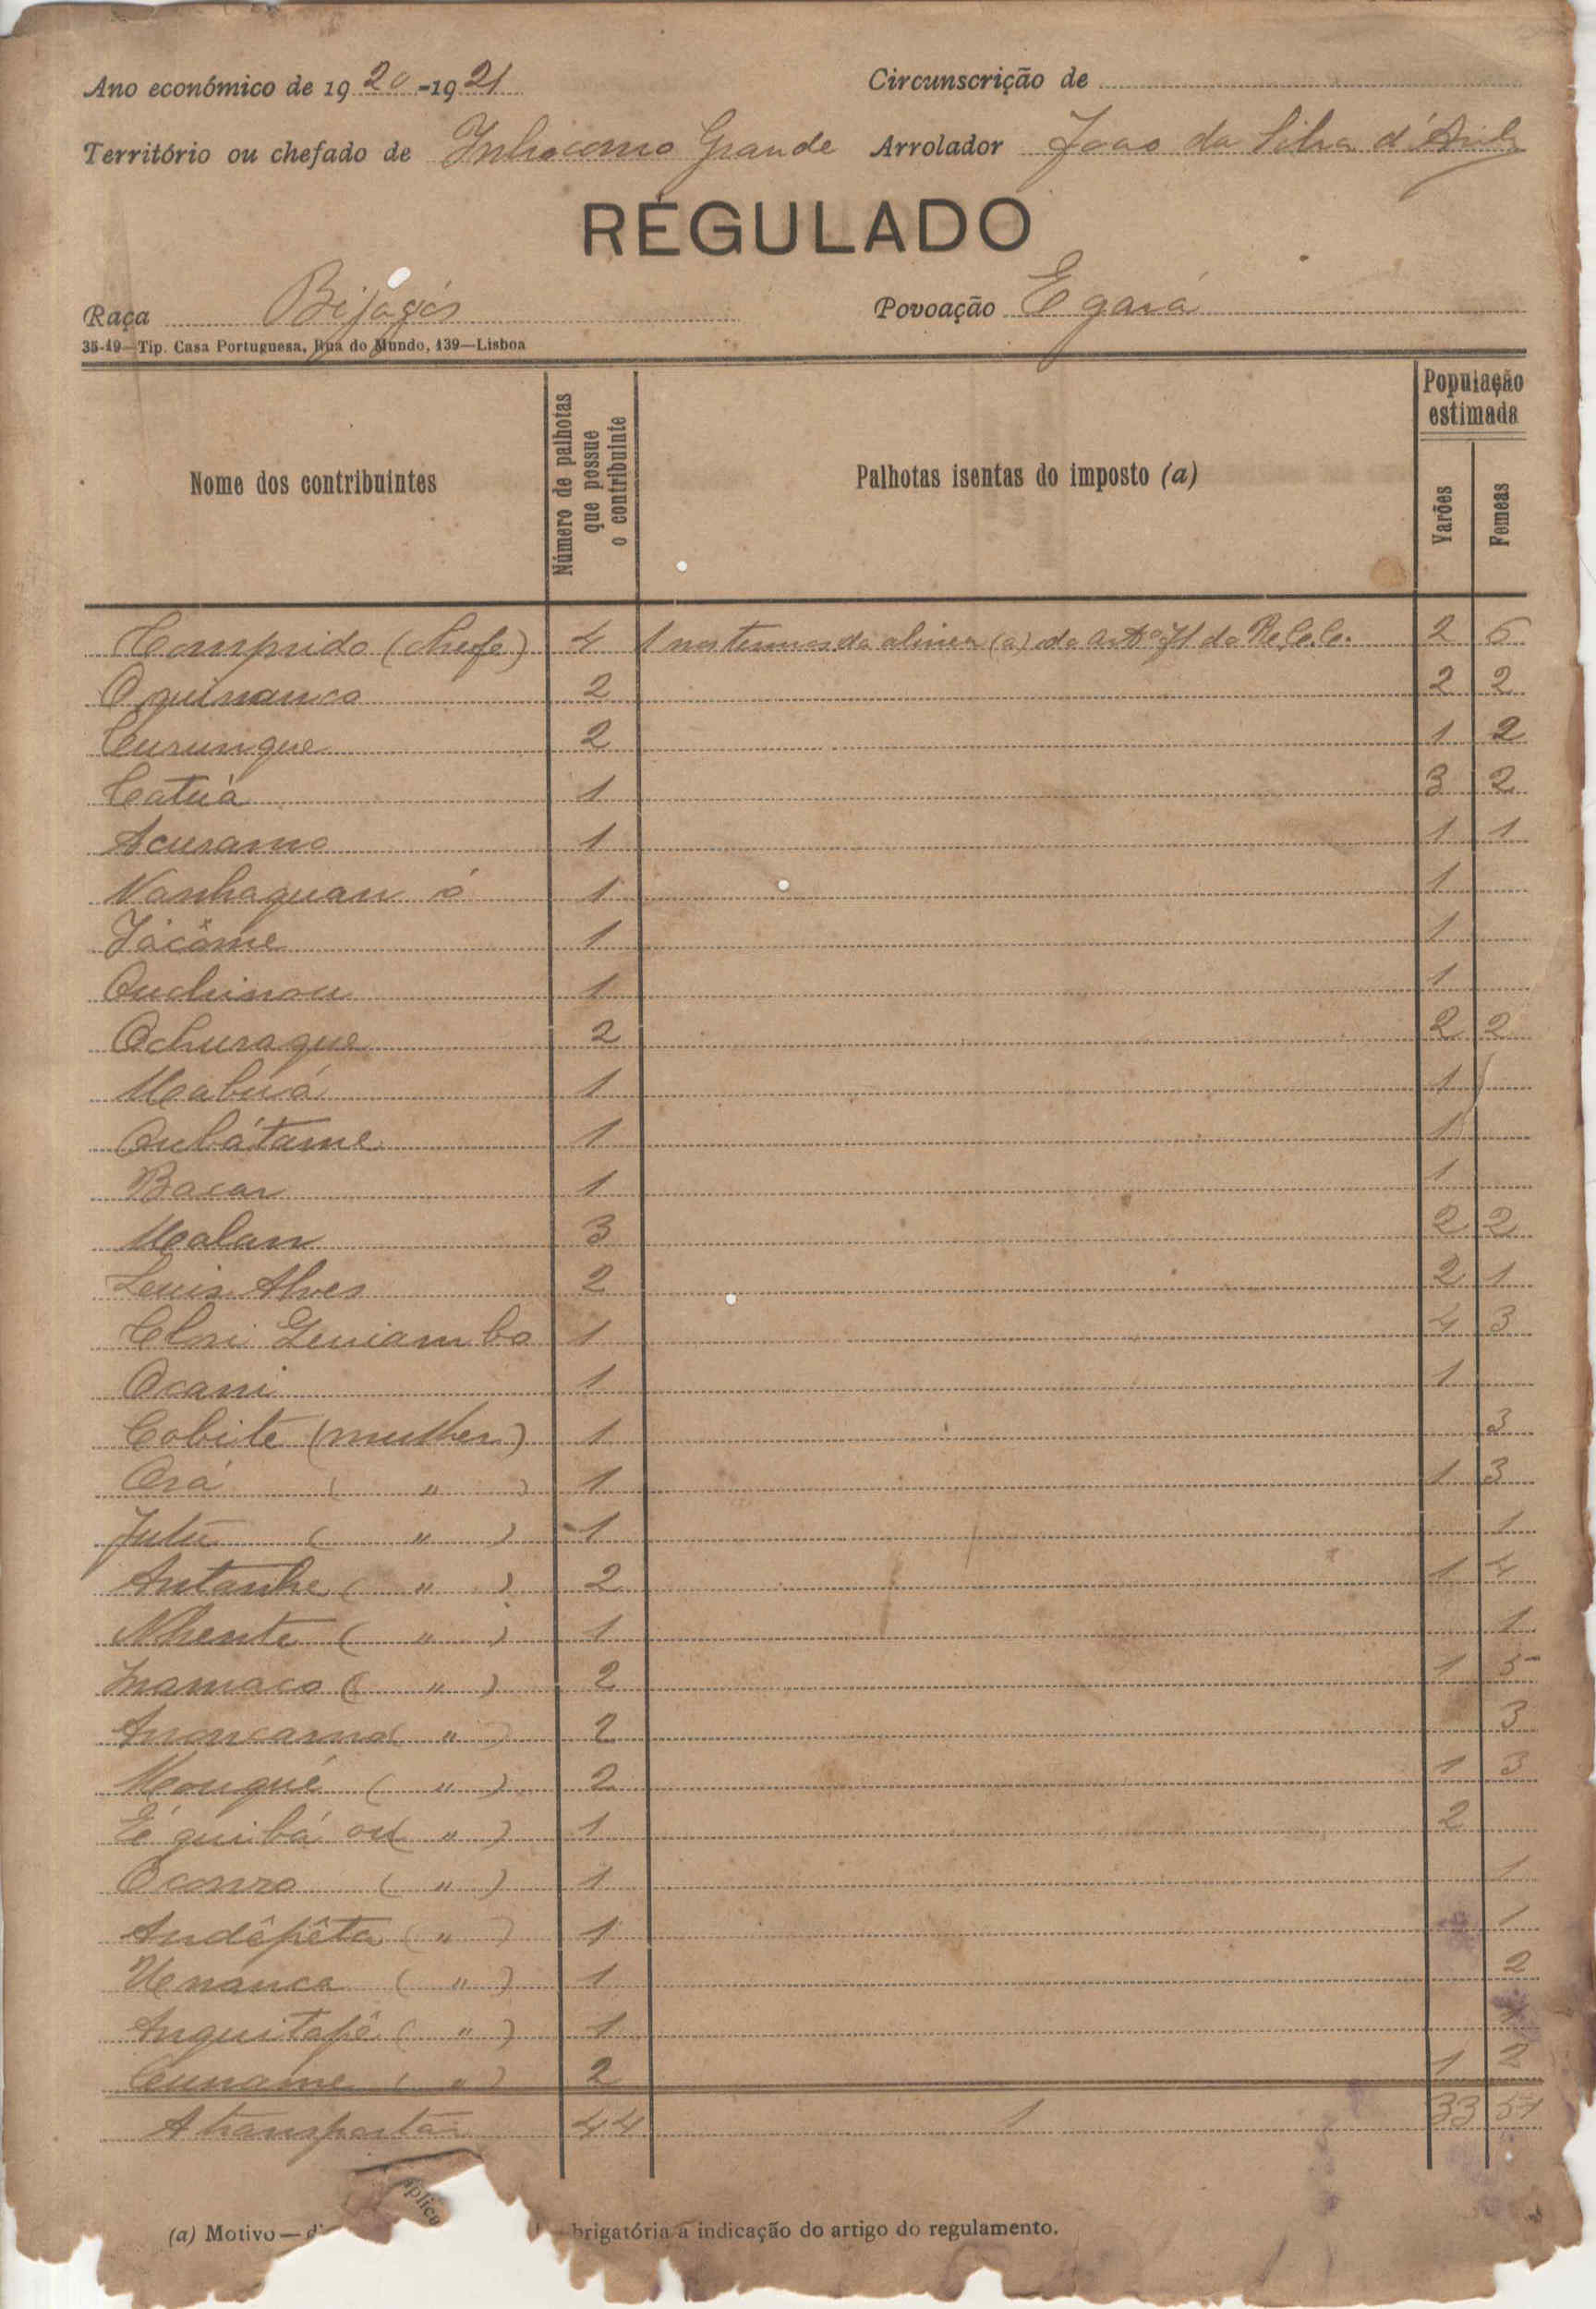 Ano económico de 1920-1921 Circunscrição de
Território ou chefado de Inhocomo Grande Arrolador Joao da Silva d'
REGULADO
Raça Bijagós Povoação Egará
35-19—Tip. Casa Portuguesa, Rua do Mundo, 139—Lisboa
Nome dos contribuintes
Número de palhotas que possue o contribuinte
Palhotas isentas do imposto (a)
População estimada
Varões Femeas
Comprido (chefe) 4 1 nos termos da alinea (a) do da 2 6
Oquinanco 2 2 2
Curungue 2 1 2
Catuà 1 3 2
Acuramo 1 1 1
Nanhaguan ó 1 1
Jácôme 1 1
Ouchinou 1 1
Ochuraque 2 2 2
Mabuá 1 1
Oubátame 1 1
Bacar 1 1
Malan 3 2 2
Luis Alves 2 2 1
1 4 3
Ocani 1 1
Cobite (mulher) 1 3
Orá ( " ) 1 1 3
( " ) 1 1
Antanhe ( " ) 2 1 4
Nhente ( " ) 1 1
Inamaco ( " ) 2 1 5
( " ) 2 3
Mongué ( " ) 2 1 3
É quibá ou ( " ) 1 2
( " ) 1 1
Andêpêta ( " ) 1 1
( " ) 1 2
Anquitapê ( " ) 1
Cuname ( " ) 2 1 2
A transportar 44 1 33
(a) Motivo— brigatória a indicação do artigo do regulamento.